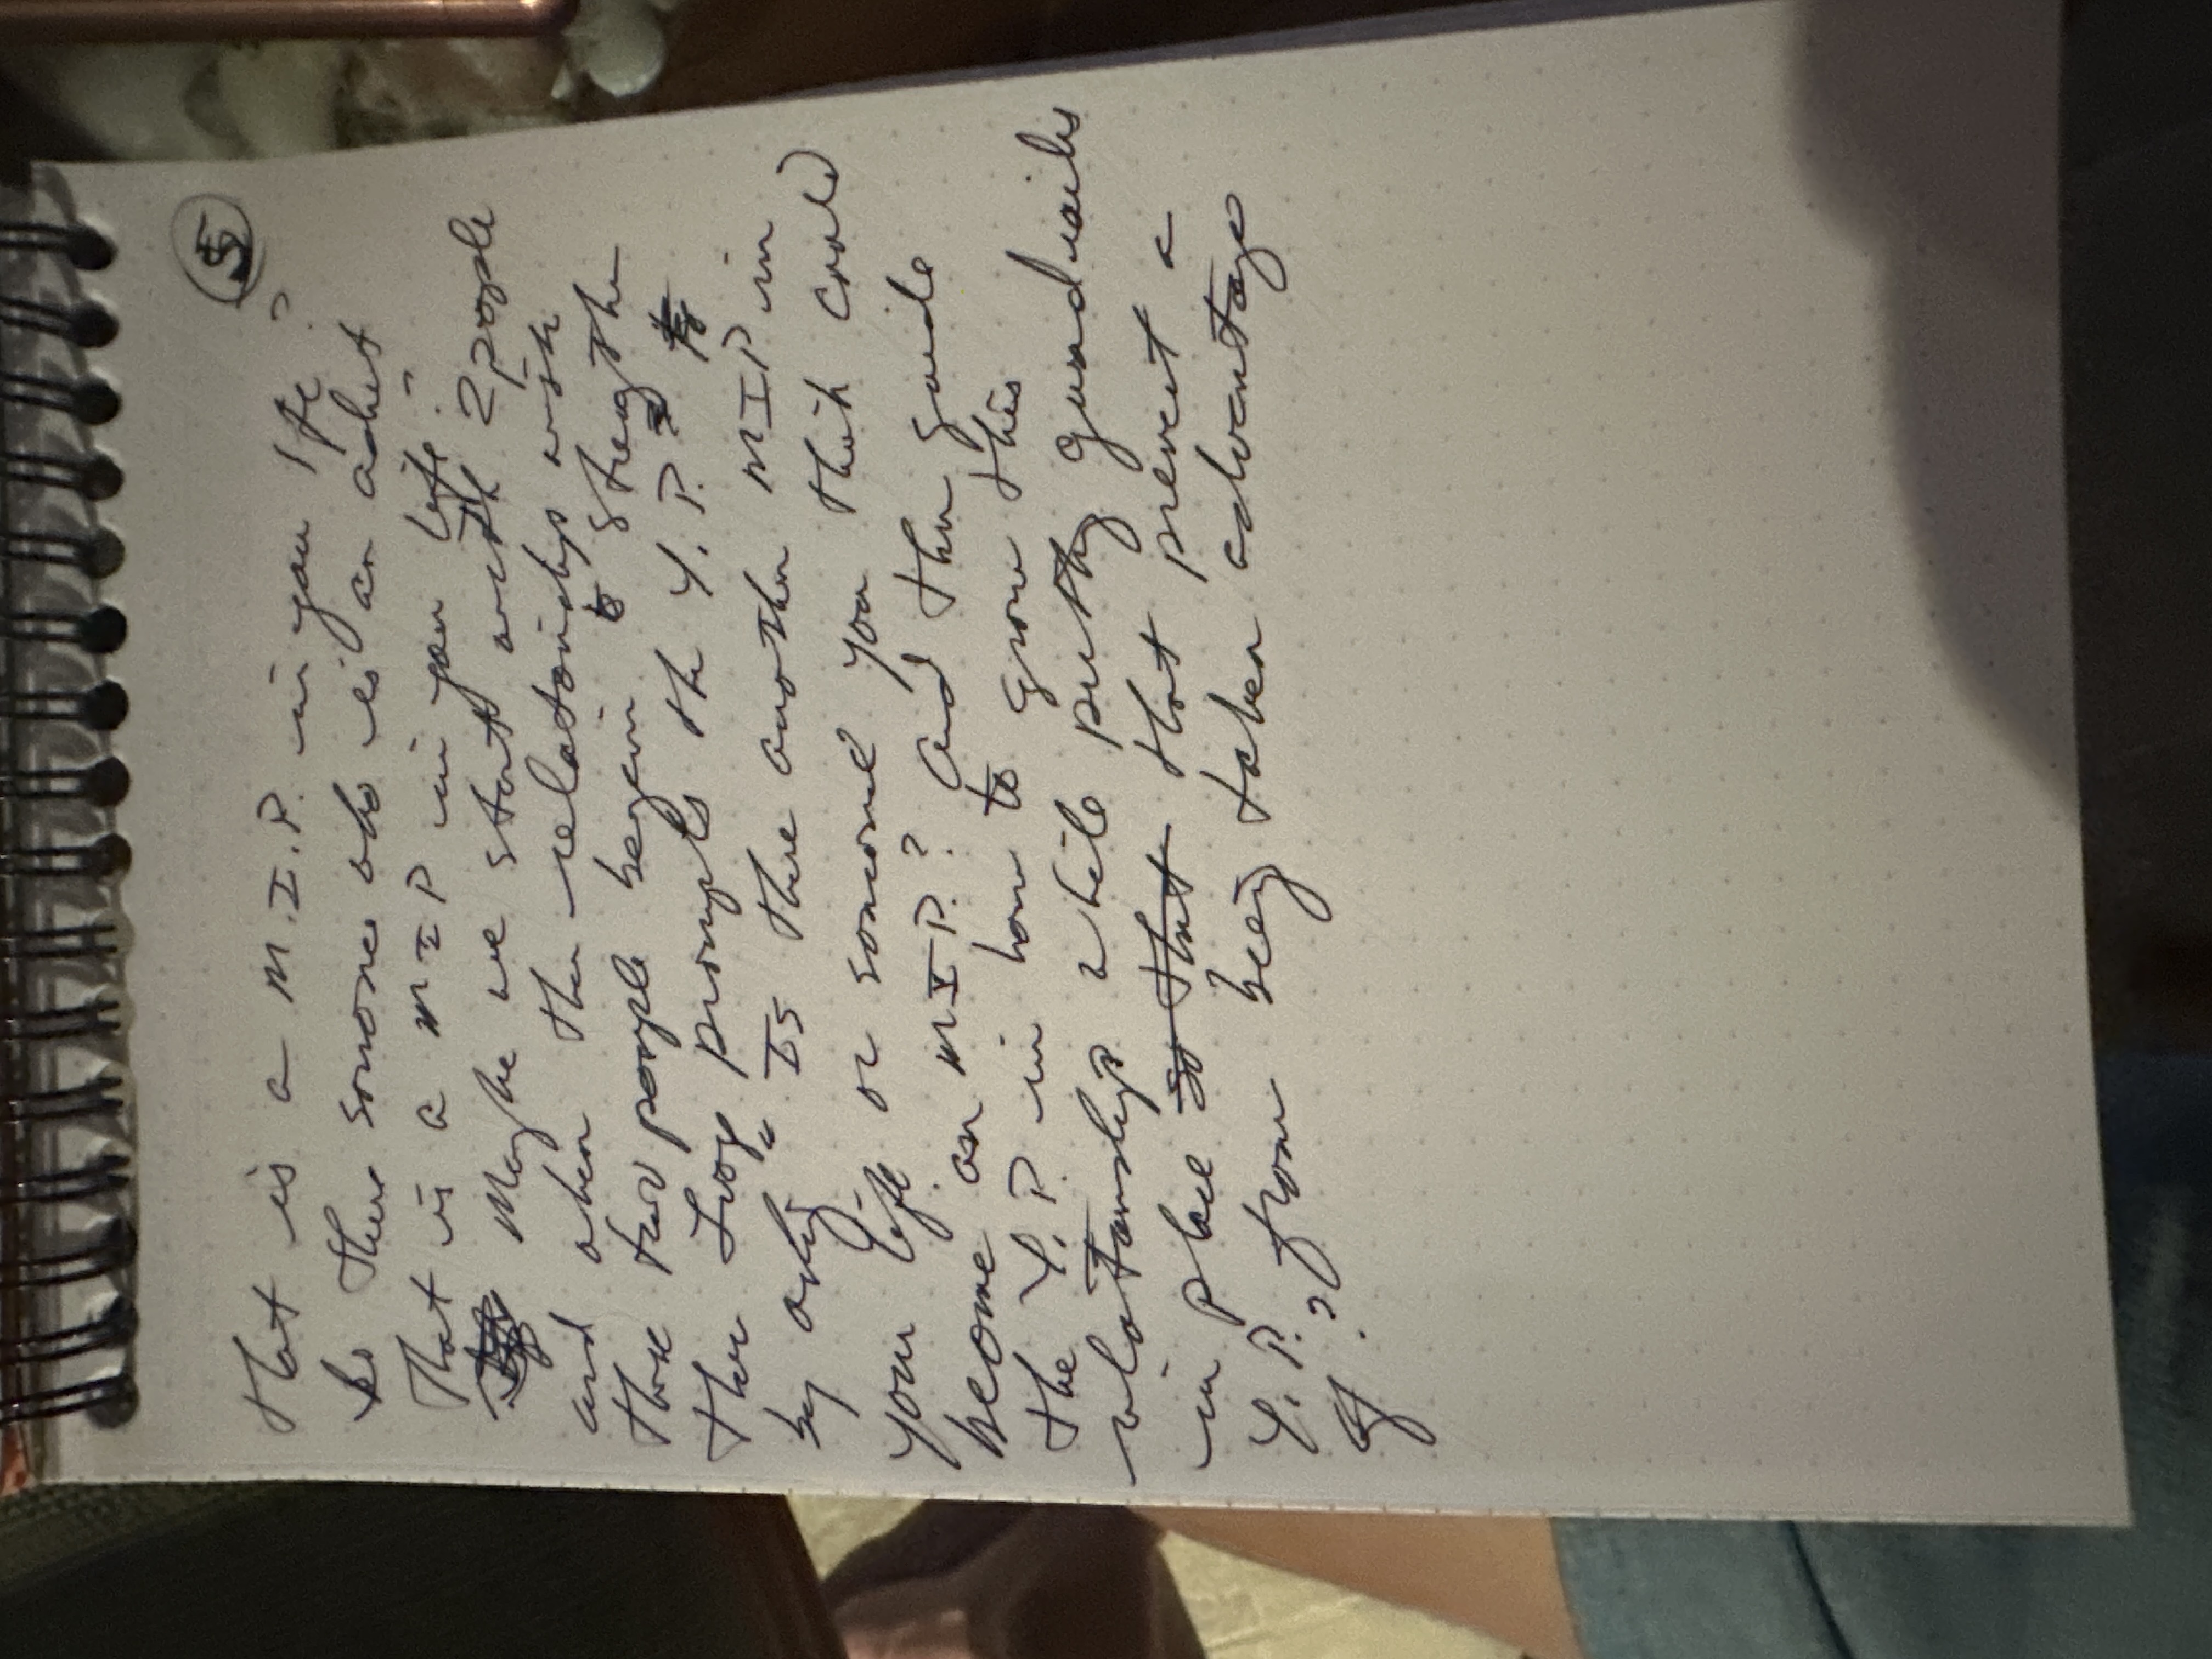 5
that is a M.I.P. in you life?
Is there someone who is an adult
that is a MIP in you life?
Maybe we start with 2 people
and when the relationship with
those two people begin to strengthen
then prompts the Y.P.
by asking "Is there another MIP in
your life or someone you think could
become an MIP.? and then guide
the Y.P. in how to grow this
relationship while putting guardrails
in place so that that prevent a
Y.P. from being taken advantage
of?